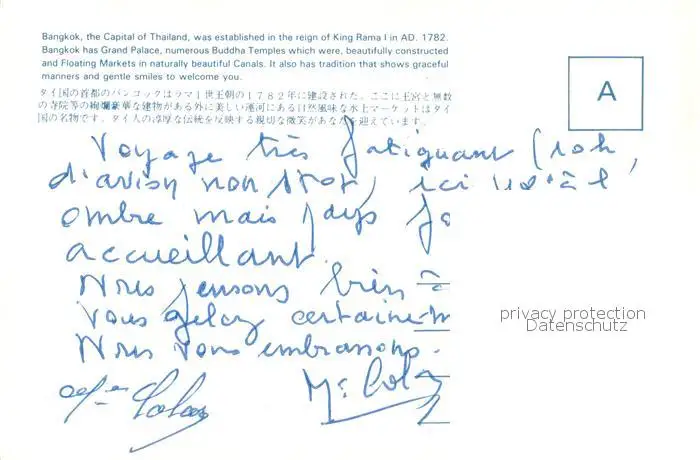 Bangkok, the Capital of Thailand, was established in the reign of King Rama I in AD. 1782.
Bangkok has Grand Palace, numerous Buddha Temples which were, beautifully constructed
and Floating Markets in naturally beautiful Canals. It also has tradition that shows graceful
manners and gentle smiles to welcome you.
タイ国の首都のバンコックはラマ1世王朝の1782年に建設された。ここに王宮と無数
の寺院等の絢爛豪華な建物がある外に美しい運河にある自然風味な水上マーケットはタイ
国の名物です。タイ人の淳厚な伝統を反映する親切な微笑があなたを迎えています。
A
Voyage très fatiguant (10h
d'avion non stop) ici à l'
ombre mais pays
accueillant.
Nous pensons bien à
vous gelez
Nous vous embrassons.
privacy protection
Datenschutz